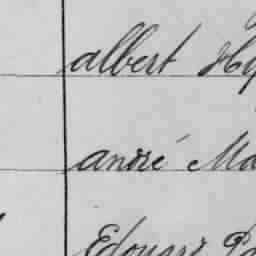 albert Hy
andré Ma
Edouard Pa